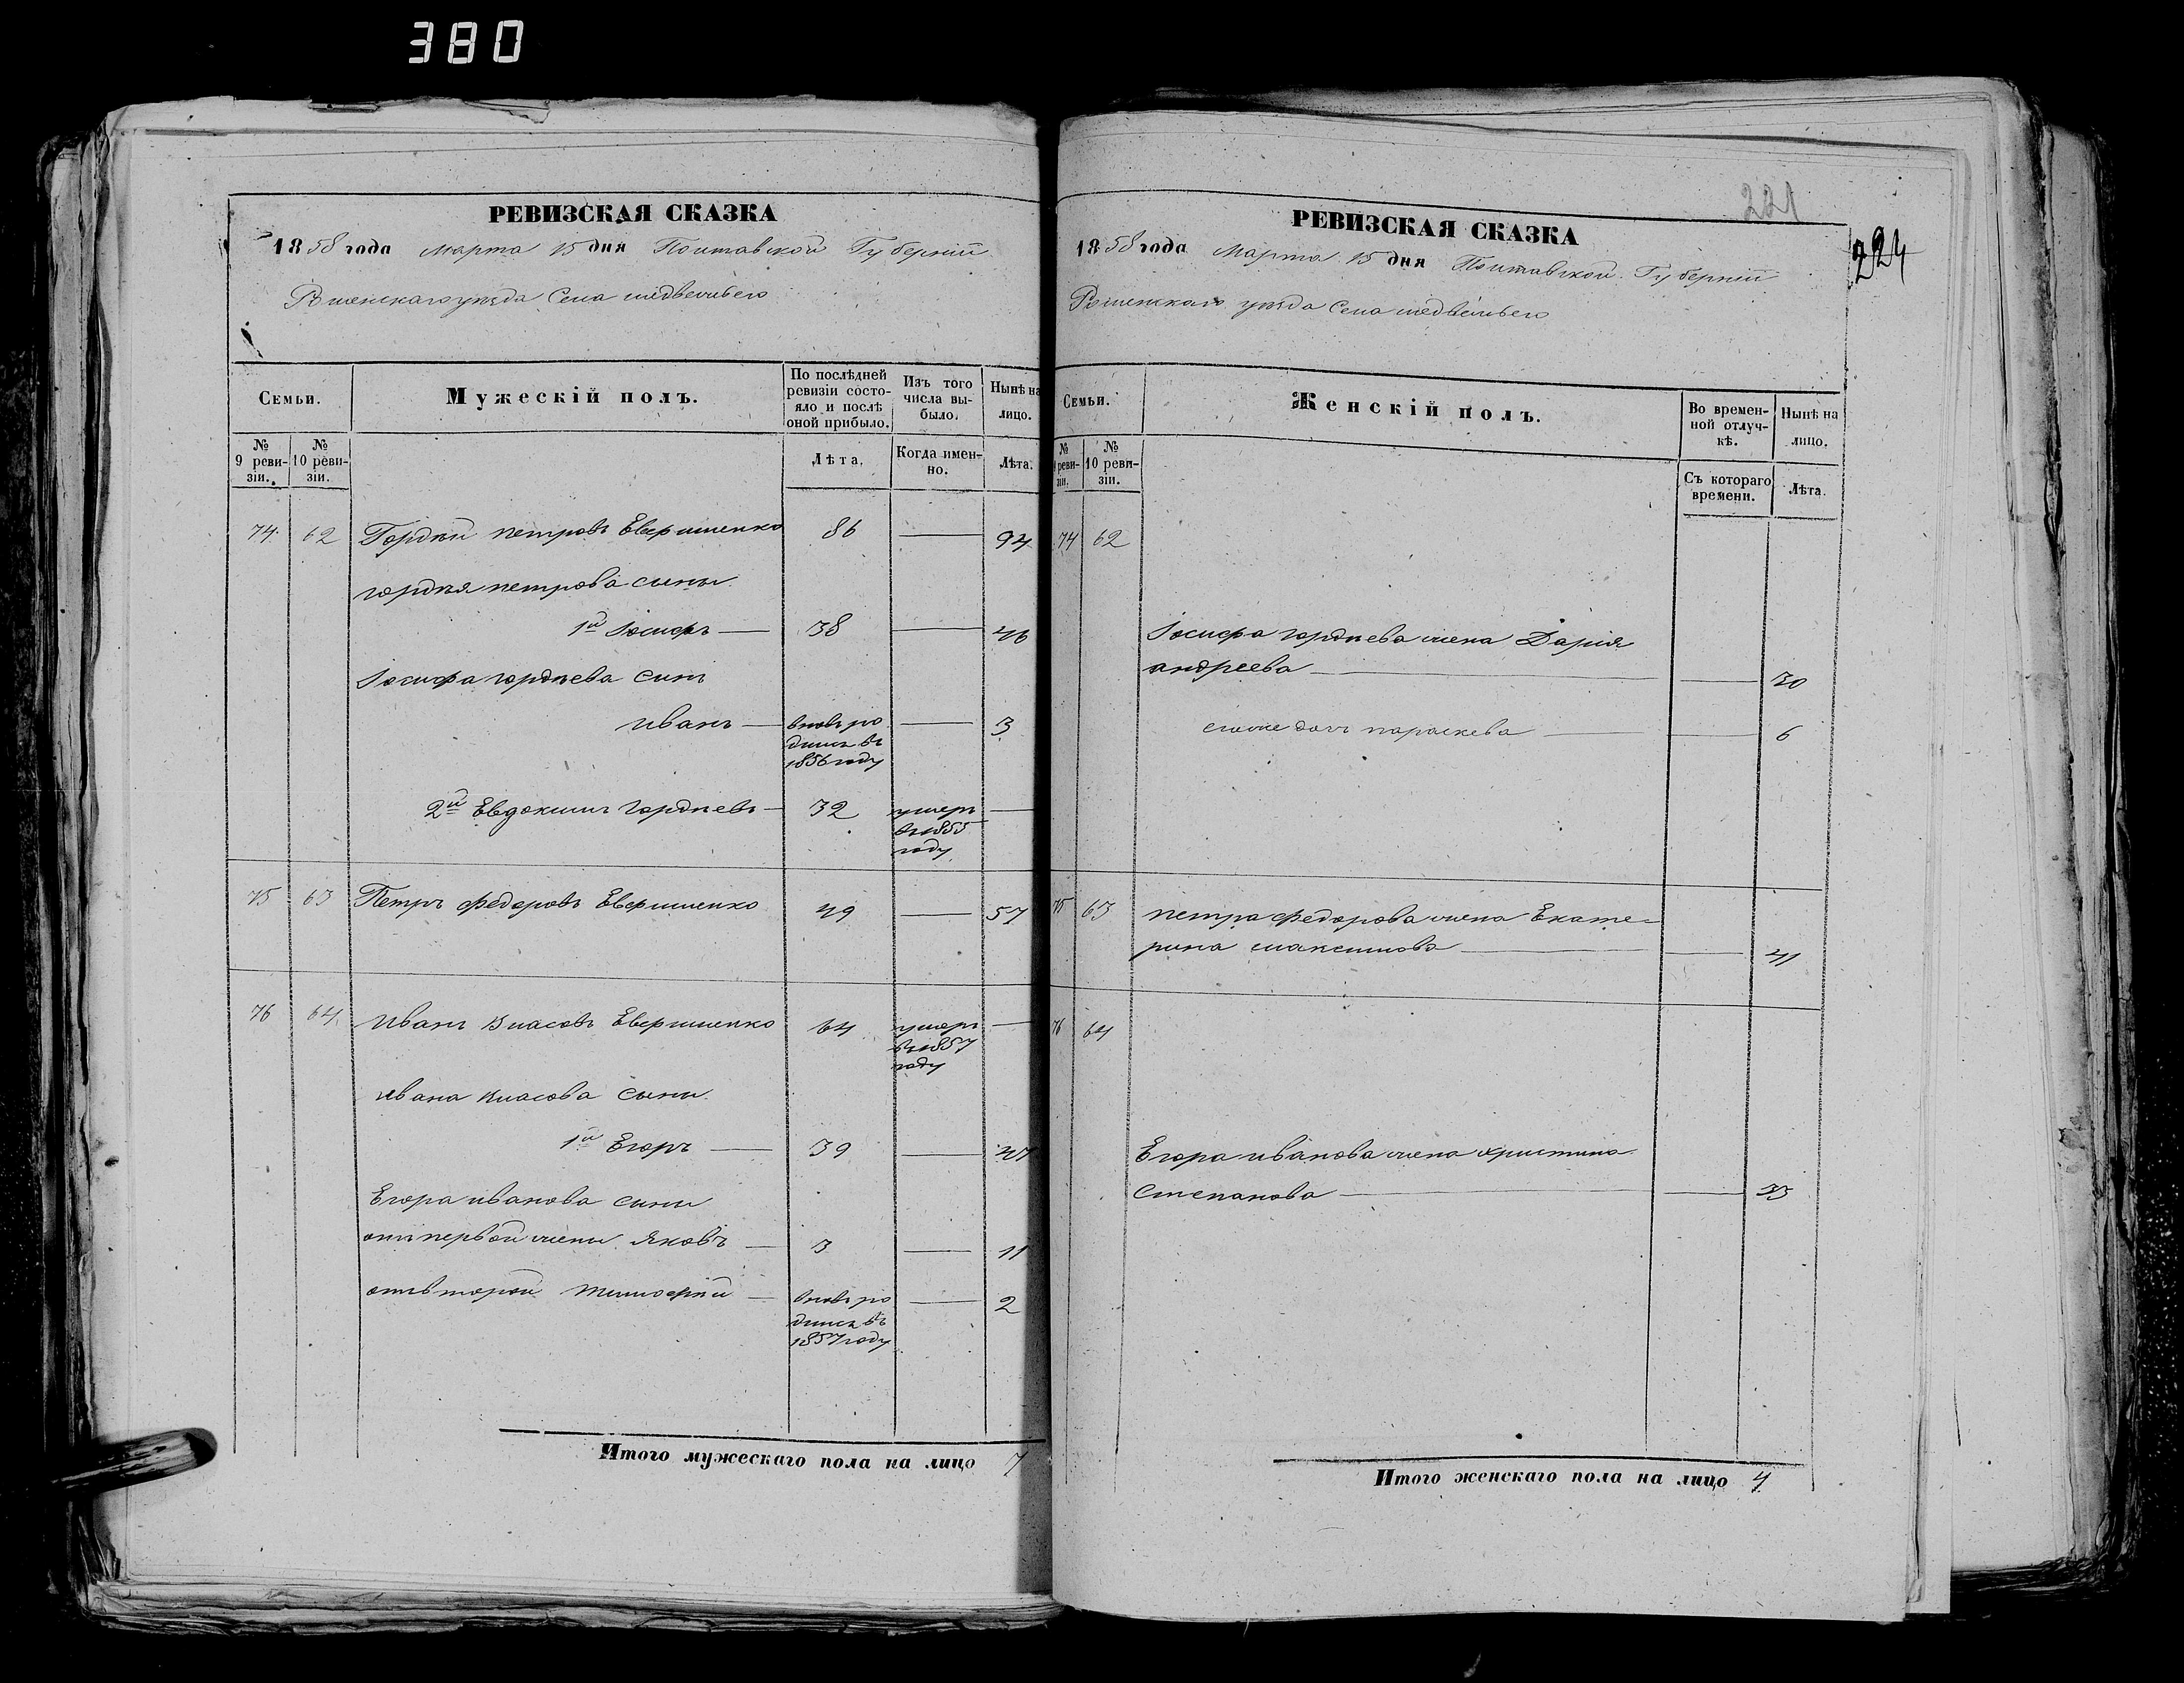 380
РЕВИЗСКАЯ СКАЗКА
1858 года марта 15 дня Полтавской Губерніи
Роменскаго уѣзда Села медвежьего
Семьи.
Мужескій полъ.
По послѣдней ревизіи состояло и послѣ оной прибыло.
Изъ того числа выбыло.
Нынѣ на лицо.
№ 9 ревизіи.
№ 10 ревизіи.
Лѣта.
Когда именно.
Лѣта.
74 62 Гордѣй петровъ Евфименко 86 — 94
гордѣя петрова сыны
1й Іосифъ — 38 — 46
Іосифа гордѣева сынъ
иванъ — вновь родился въ 1856 году — 3
2й Евдокимъ Гордѣевъ — 32 умеръ въ 1855 году —
75 63 Петръ федоровъ Евфименко 49 — 57
76 64 Иванъ Власовъ Евфименко 64 умеръ въ 1857 году —
Ивана Власова сыны
1й Егоръ — 39 — 47
Егора иванова сыны
отъ первой жены Яковъ — 3 — 11
отъ второй Тимофей — вновь родился въ 1857 году — 2
Итого мужескаго пола на лицо 7
221
224
РЕВИЗСКАЯ СКАЗКА
1858 года Марта 15 дня Полтавской Губерніи
Роменскаго уѣзда Села медвежьего
Семьи.
Женскій полъ.
Во временной отлучкѣ.
Нынѣ на лицо.
№ 9 ревизіи.
№ 10 ревизіи.
Съ котораго времени.
Лѣта.
74 62
Іосифа гордѣева жена Дарія
андреева — — 30
его же доч параскева — — 6
75 63 петра федорова жена Екате-
рина максимова — — 41
76 64
Егора иванова жена христина
Степанова — — 35
Итого женскаго пола на лицо 4